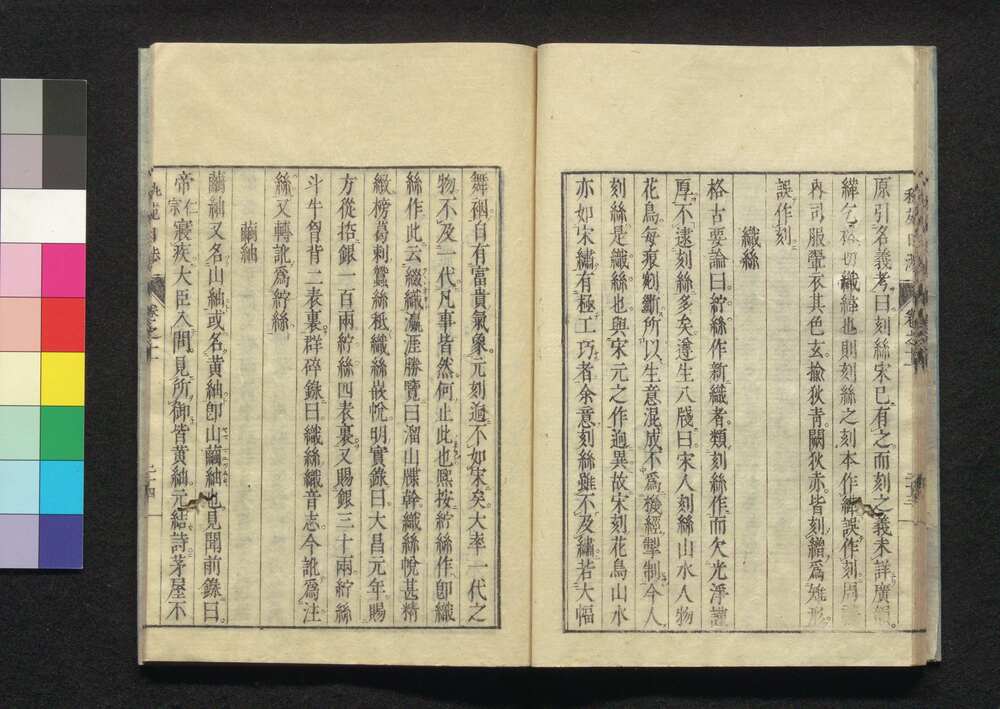 原引名義考曰刻絲宋已有之而刻之義未詳廣韻
緯乞格切織緯也則刻絲之刻本作緙誤作刻周禮
內司服鞏衣其色玄揄狄青闕狄赤皆刻繒爲雉形
誤作刻
織絲
格古要論曰紵絲作新織者類刻絲作而欠光淨謹
厚不逮刻絲多矣遵生八牋曰宋人刻絲山水人物
花鳥每痕剜斷所以生意混成不爲機經掣制今人
刻絲是織絲也與宋元之作逈異故宋刻花鳥山水
亦如宋繡有極工巧者余意刻絲雖不及繡若大幅
舞裀自有富貴氣象元刻逈不如宋矣大率一代之
物不及一代凡事皆然何止此也熙按紵絲作卽織
絲作此云綴織瀛涯勝覽曰溜山牒幹織絲帨甚精
緻榜葛剌蠶絲秪織絲嵌帨明實錄曰大昌元年賜
方從哲銀一百兩紵絲四表裏又賜銀三十兩紵絲
斗牛胷背二表裏群碎錄曰織絲織音志今訛爲注
絲又轉訛爲紵絲
繭紬
繭紬又名山紬或名黃紬卽山繭紬也見聞前錄曰
仁宗帝寢疾大臣入問見所御皆黃紬元結詩茅屋不
卷之十
二十四